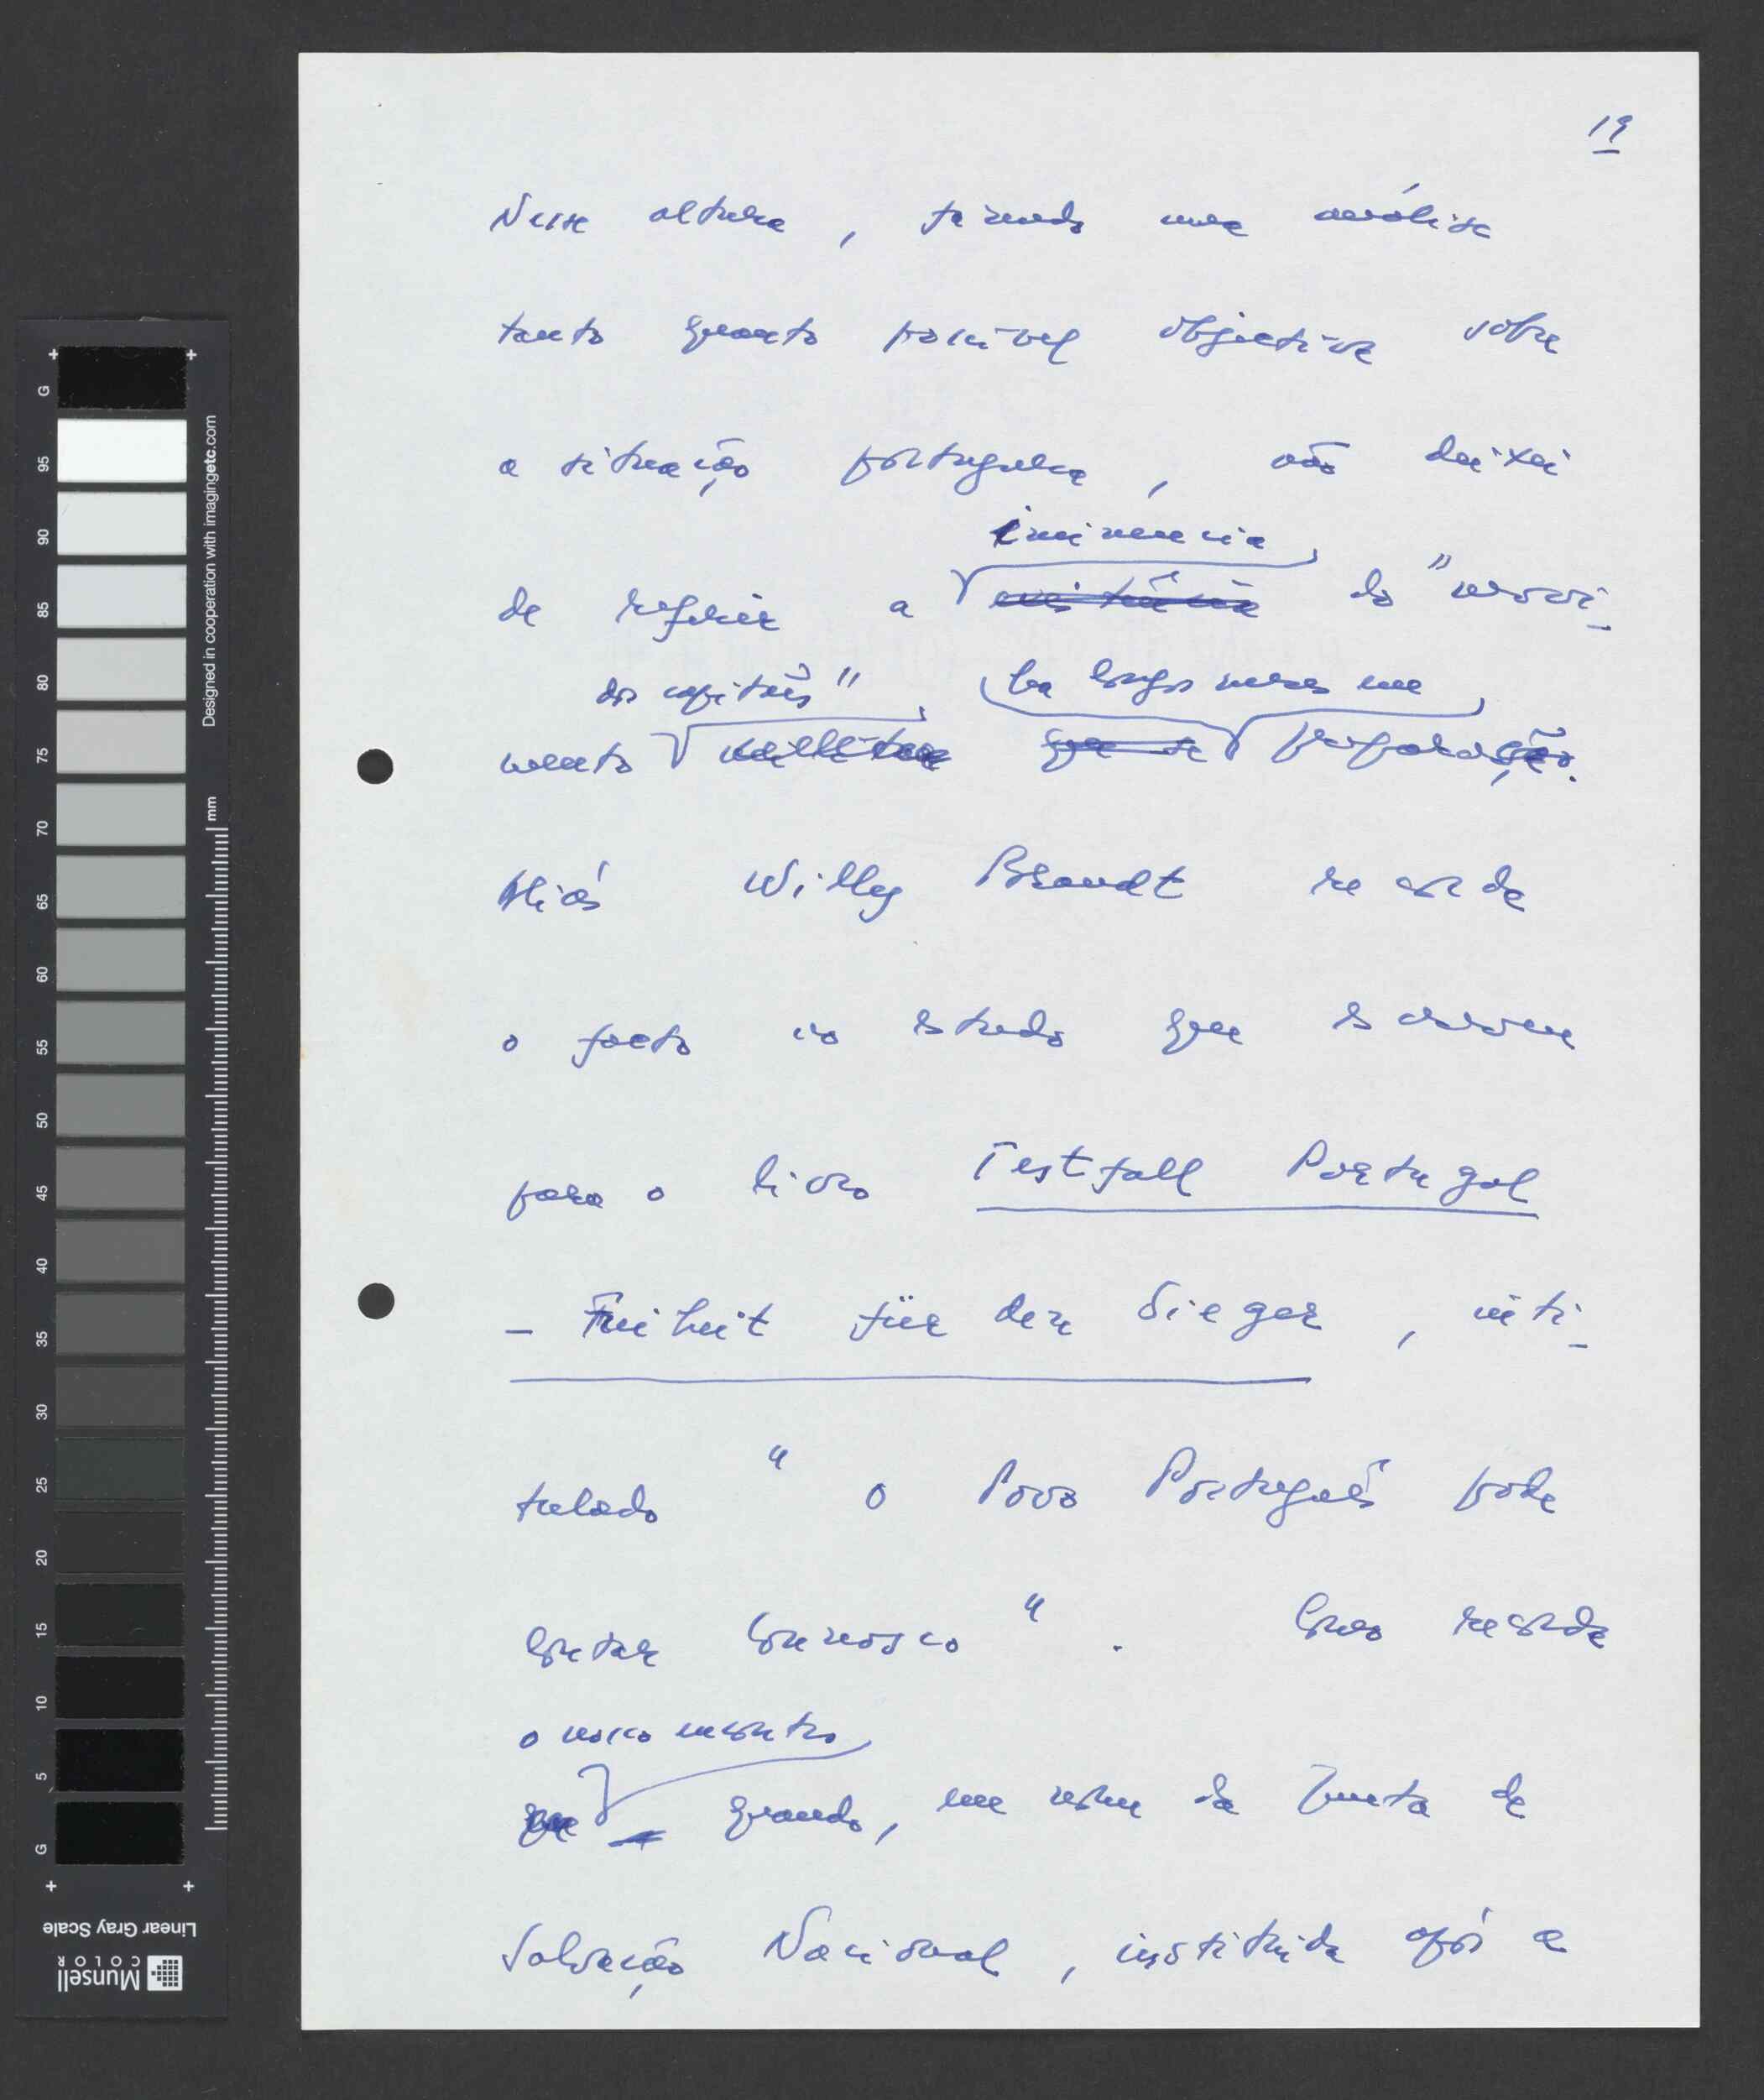 19
Nessa altura, fazendo uma análise
tanto quanto possível objectiva sobre
a situação portuguesa, não deixei
iminencia
de referir a existência do "movi-
dos capitães" ha longos meses em
mento militar que se preparação.
Aliás Willy Brandt recorda
o facto no estudo que escreveu
para o livro Testfall Portugal
- Freiheit für den Sieger, inti-
tulado "O Povo Português pode
contar connosco". Como recorda
o nosso encontro
que quando, em nome da Junta de
Salvação Nacional, instituida após a
G
95
90
85
80
75
70
65
60
55
50
45
40
35
30
25
20
15
10
5
G
mm
Designed in cooperation with imagingetc.com
Linear Gray Scale
Munsell
COLOR